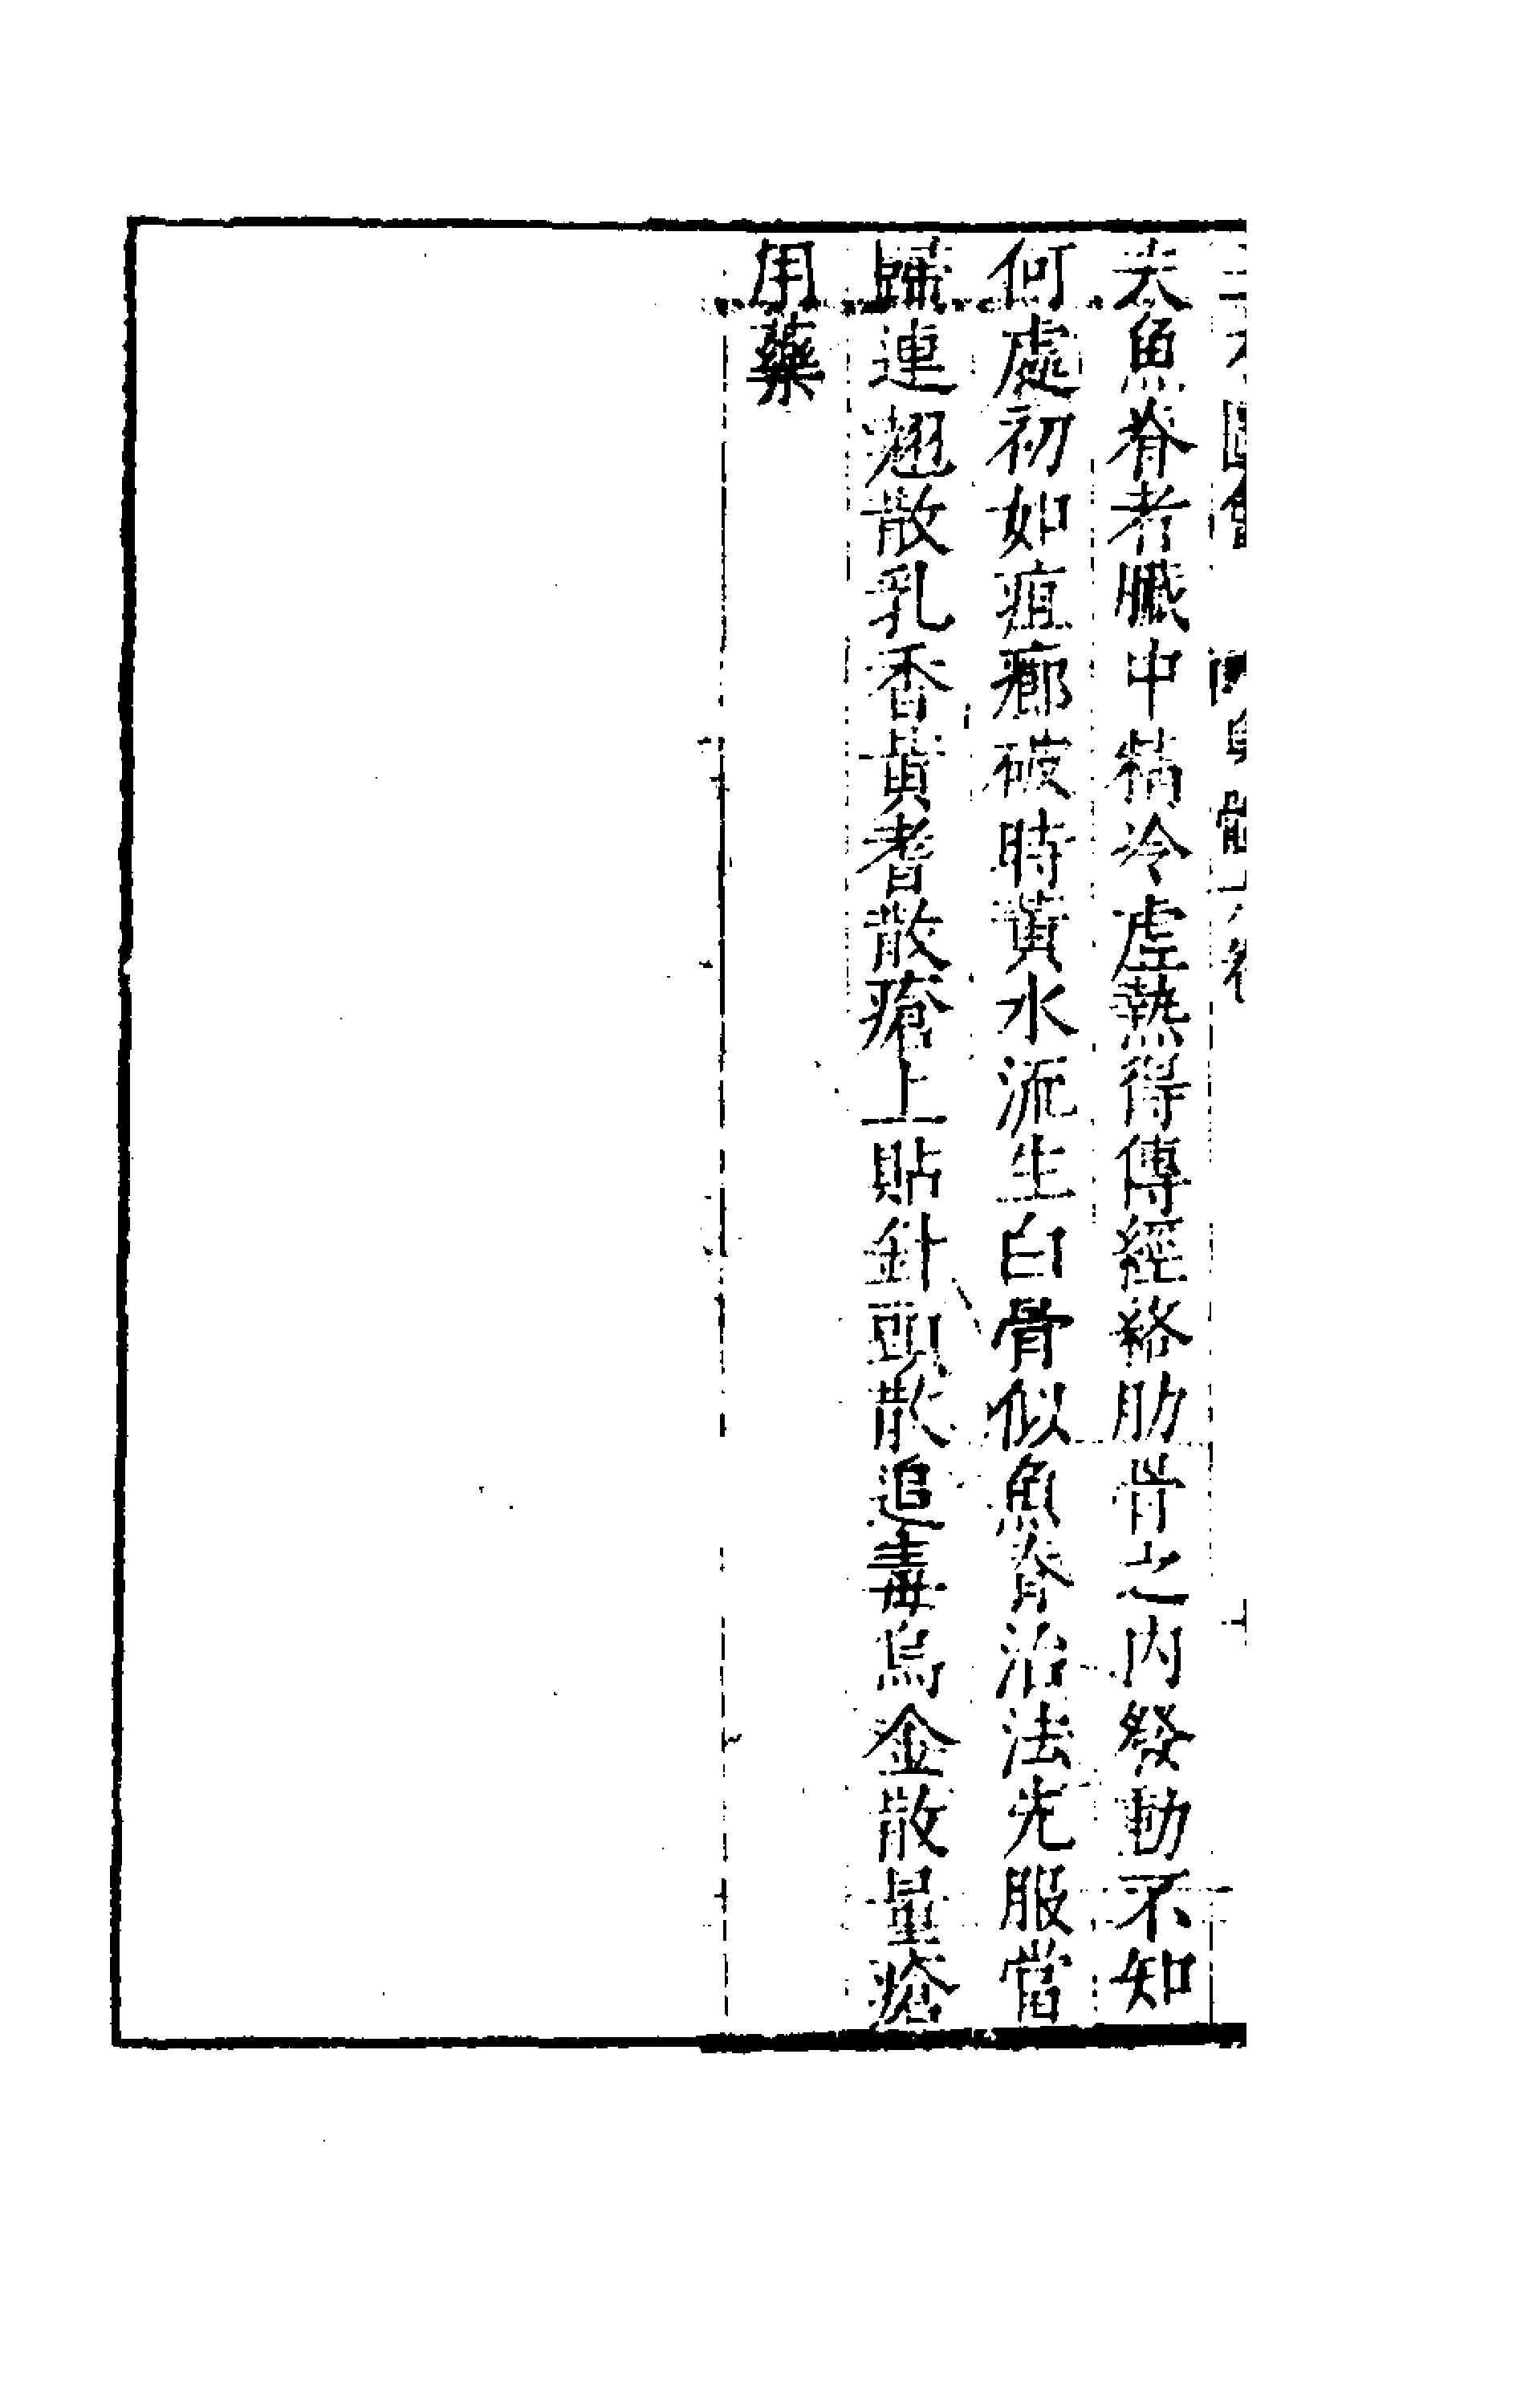 三才圖會 身體六卷
夫魚脊者臟中積冷虛熱得傳經絡肋骨之內發動不知
何處初如疽癤破時黃水流生白骨似魚脊治法先服當
歸連翹散乳香黃耆散瘡上貼針頭散追毒烏金散量瘡
用藥